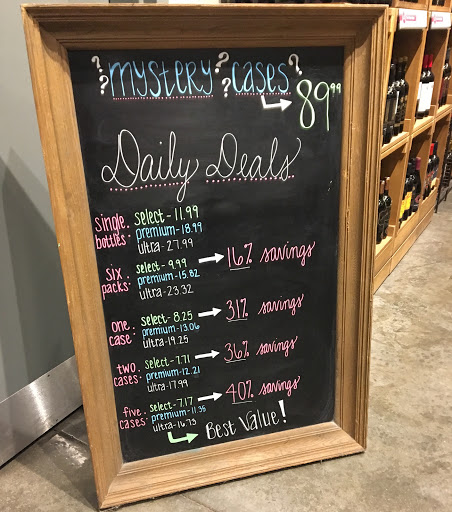 ? ? mystery ? ? cases ?
→ 89⁹⁹
Daily Deals
single bottles: select - 11.99
premium - 18.99
ultra - 27.99
six packs: select - 9.99 → 16% savings
premium - 15.82
ultra - 23.32
one case: select - 8.25 → 31% savings
premium - 13.06
ultra - 19.25
two cases: select - 7.71 → 36% savings
premium - 12.21
ultra - 17.99
five cases: select - 7.17 → 40% savings
premium - 11.35
ultra - 16.73
→ Best Value!